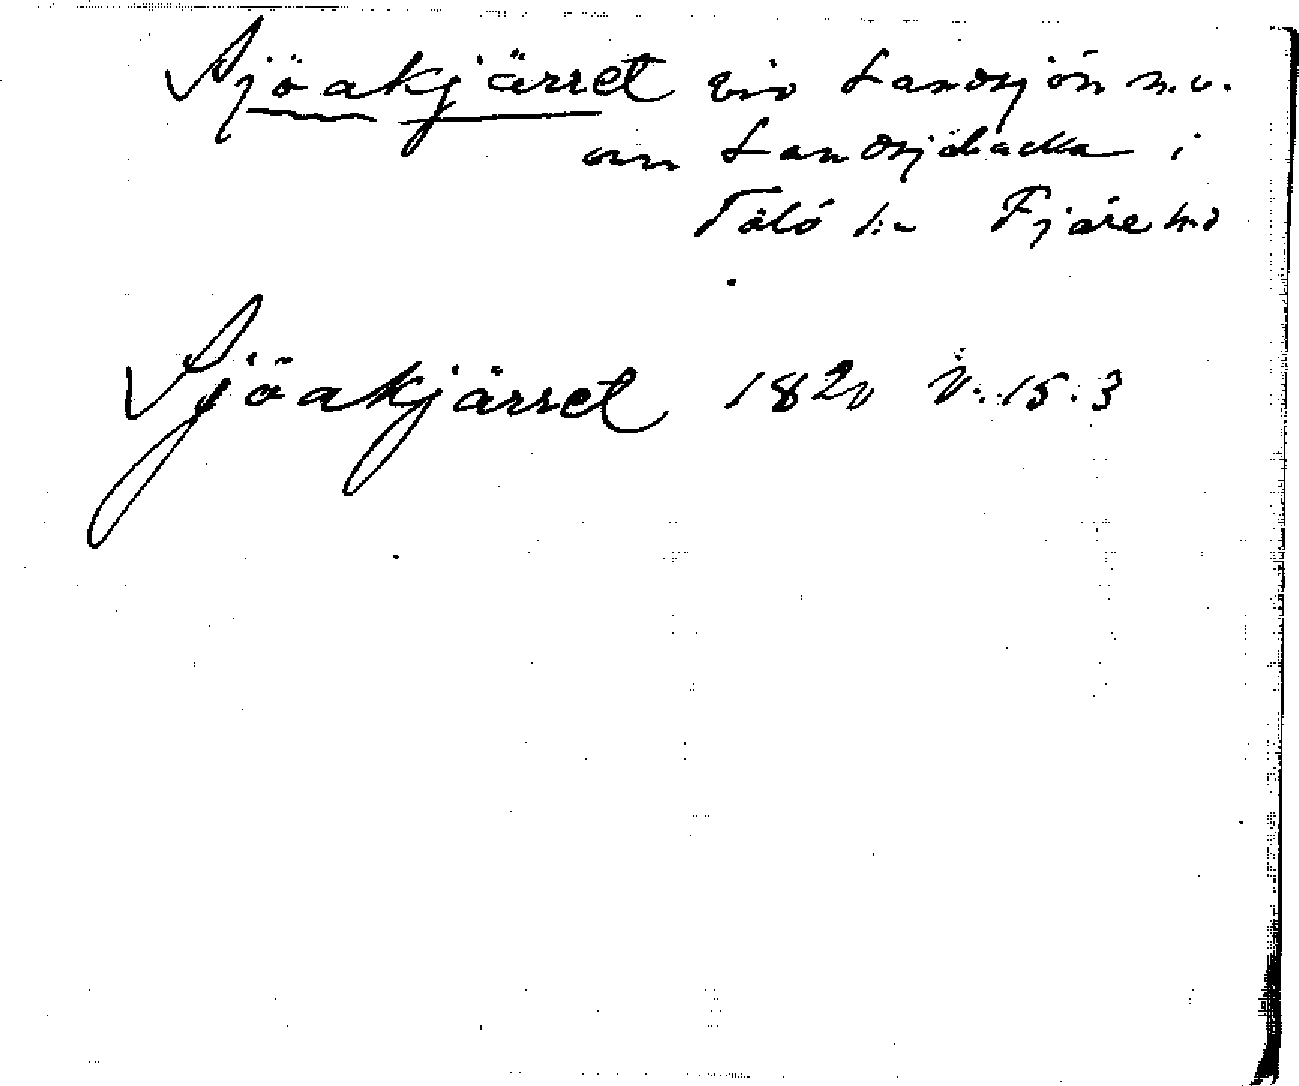 Sjöakjärret vid Landsjön n.v.
om Landsjöbacka i
Tölö sn Fjäre hd
Sjöakjärret 1820 V. 15:3